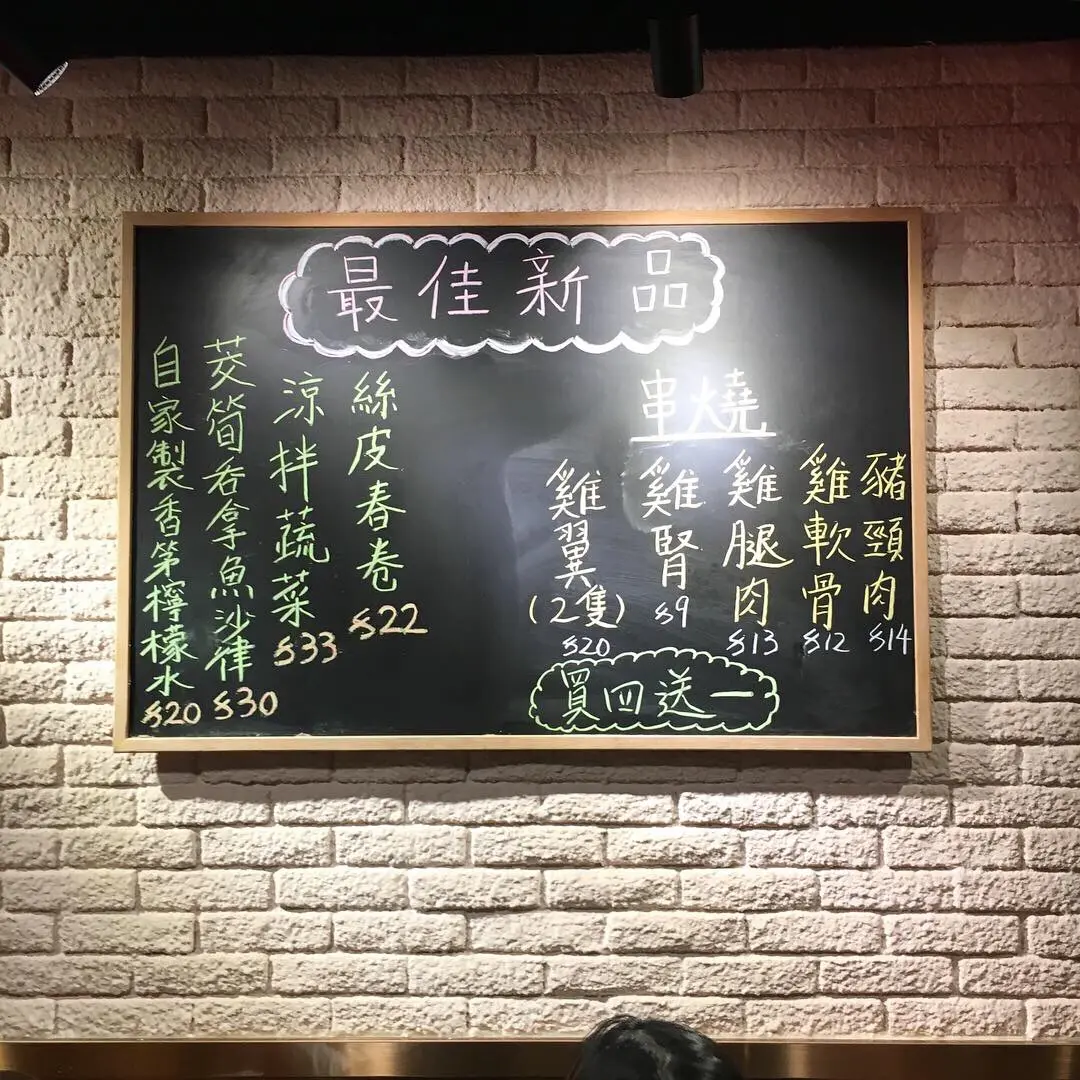 最佳新品
串燒
豬頸肉
$14
雞軟骨
$12
雞腿肉
$13
雞腎
$9
雞翼(2隻)
$20
買四送一
絲皮春卷
$22
涼拌蔬菜
$33
茭筍吞拿魚沙律
$30
自家製香第檸檬水
$20